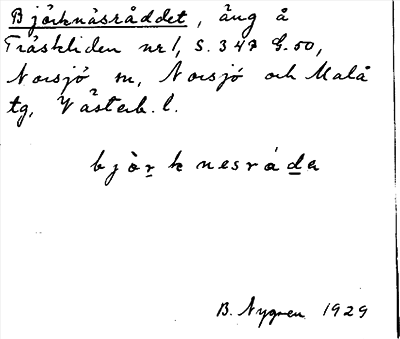 Björknäsråddet, äng å
Träskliden nr 1, S. 347 G. 50,
Norsjö sn, Norsjö och Malå
tg, Västerb. l.
bjò̱rknesráḏa
B. Nygren 1929